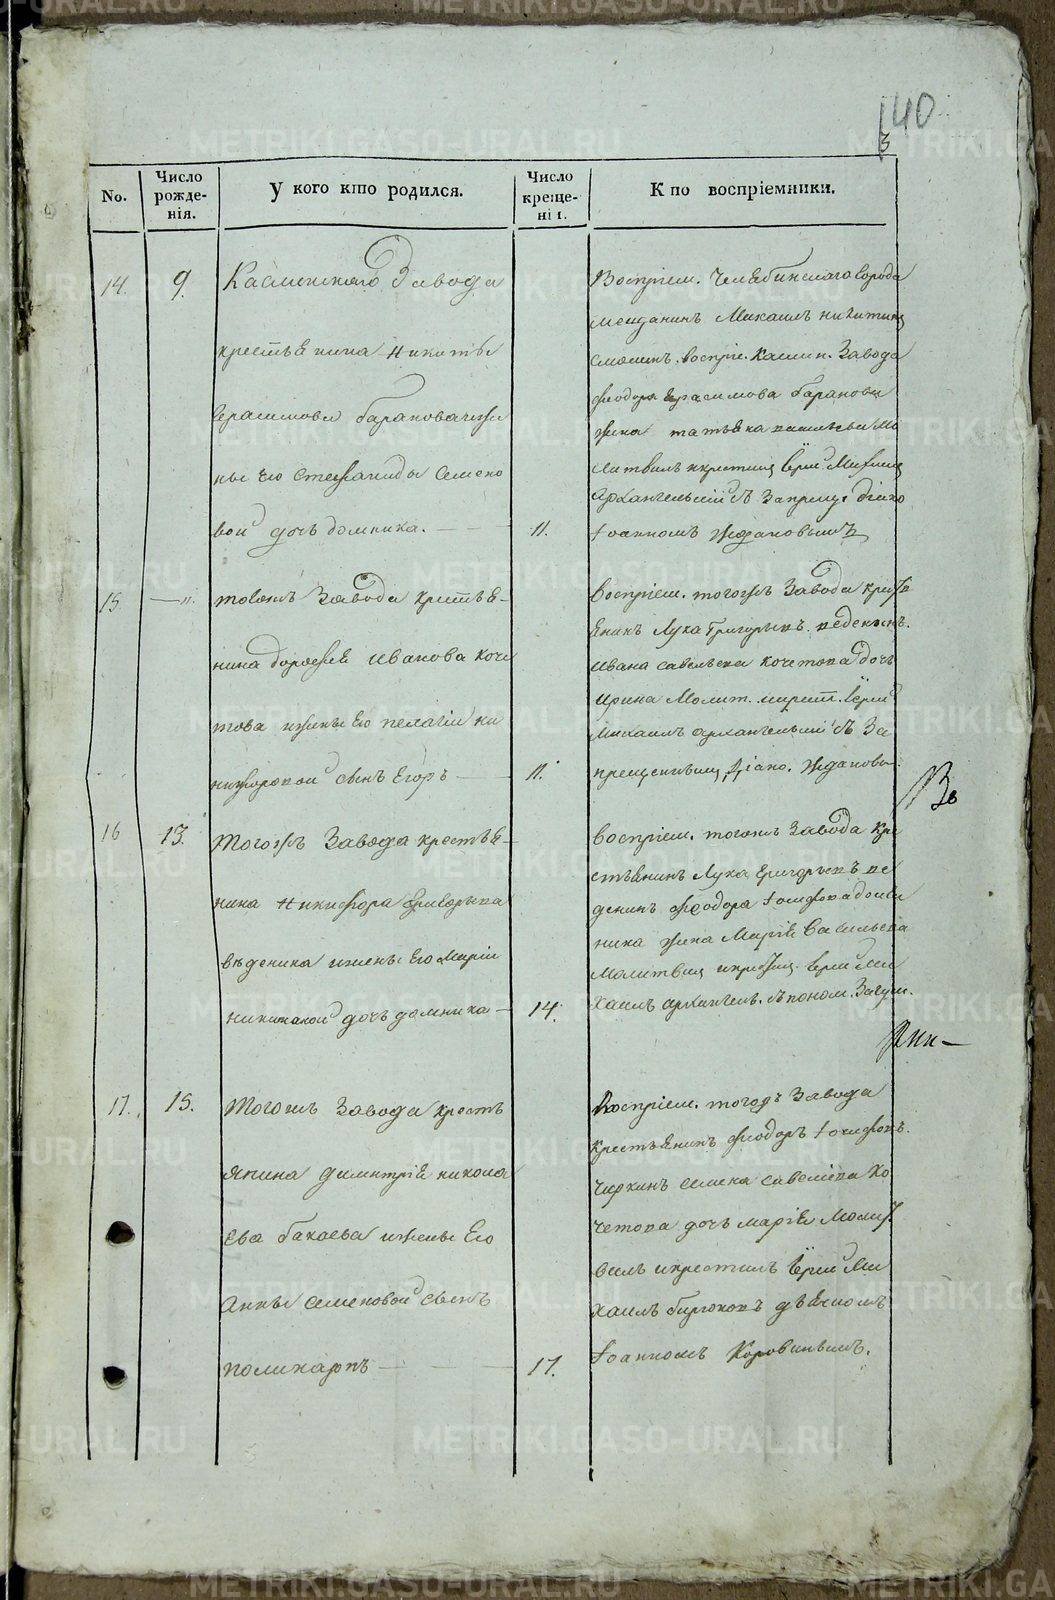 140
3
No.
Число рожденія.
У кого кто родился.
Число крещені і.
Кто воспріемники.
14.
9.
Каслинскаго Завода
крестьянина Никиты
Герасимова Баранова иже
ны его Стефаниды Семено
вой дочь домника.
11.
Воспріем. Челябинскаго города
мещанинъ Михаилъ Никитинъ
Смолинъ. воспріе. Каслин. Завода
Феодора Герасимова Баранова
жена татьяна Мо
литвилъ икрестилъ Іерей Михаилъ
Архангельскій съ Запрещ. діако
Іоанномъ Ждановымъ
15
11.
тогожъ Завода крестья-
нина дорофея Иванова Коче
това ижены его пелагіи Ни
кифоровой сынъ Егоръ
11.
воспріем. тогожъ Завода крест
янинъ Лука Григорьевъ веденинъ.
Ивана савельева кочетова дочь
Ирина Молит. икрест. Іерей
Михаилъ архангельскій съ За
прещеннымъ діако. Ждановы.
Во
16
13.
Тогожъ Завода крестья-
нина Никифора Григорьева
вѣденина ижены его Маріи
дочь домника
14.
воспріем. тогожъ Завода кре
стьянинъ Лука григорьевъ ве
денинъ феодора Іосифова
жена Марія Васильева
Молитвилъ икрестил. Іерей Ми
хаилъ архангель. съ поном.
17.
15.
Тогожъ Завода кресть
янина димитрія никола
ева бакаева ижены Его
Анны семеновой сынъ
поликарпъ
17.
Воспріем. тогожъ Завода
Крестьянинъ Феодоръ Іосифовъ
Чиркинъ семена савельева Ко
четова дочь марія Молит
вилъ икрестилъ Іерей Ми
хаилъ бирюковъ дьячкомъ
Іоанномъ Коровинымъ.
METRIKI.GASO-URAL.RU